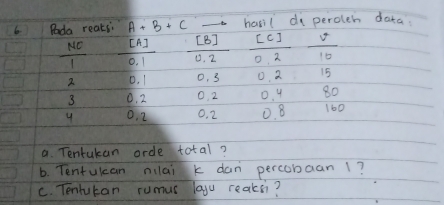 6 Pada reaksi A + B + C → hasil di peroleh data:
NO [A] [B] [C] v
1 0,1 0,2 0,2 10
2 0,1 0,3 0,2 15
3 0,2 0,2 0,4 80
4 0,2 0,2 0,8 160
a. Tentukan orde total?
b. Tentukan nilai k dari percobaan 1?
c. Tentukan rumus laju reaksi?